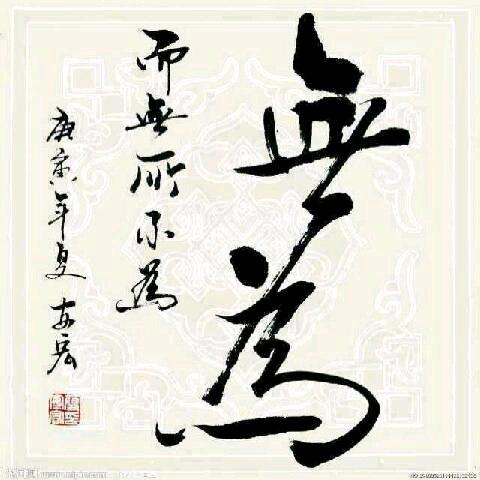 無為
而無所不為
庚寅年夏